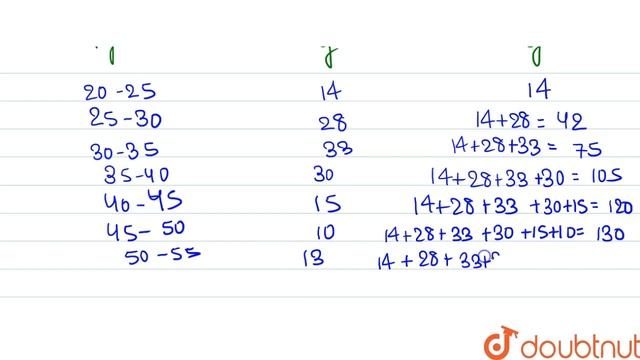 20-25 14 14
25-30 28 14+28 = 42
30-35 33 14+28+33 = 75
35-40 30 14+28+33+30 = 105
40-45 15 14+28+33 +30+15= 120
45-50 10 14+28+33 +30+15+10= 130
50-55 13 14+28+33+
doubtnut